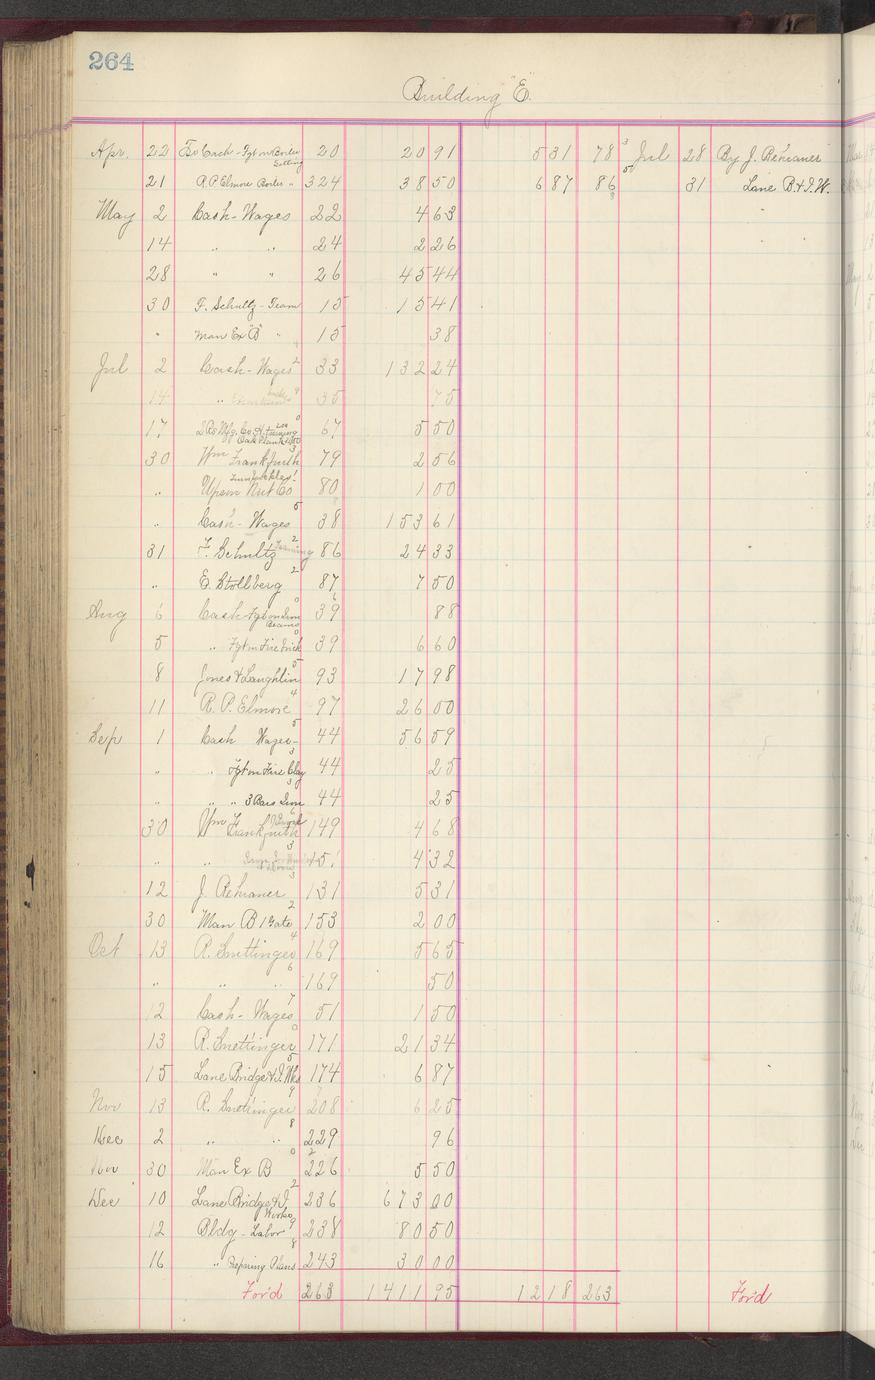 264
Building "E."
Apr. 22 To Cash - Fgt on Boiler Setting 20 20 91 5 31 78 Jul 28 By J. Rehraner
21 R.P. Elmore Boiler " 324 38 50 6 87 86 31 Lane B. & I. W.
May 2 Cash - Wages 22 4 63
14 " " 24 2 26
28 " " 26 45 44
30 F. Schultz - Team 15 15 41
" Man Ex "B" " 15 38
Jul 2 Cash - Wages 33 132 24
14 " 35 75
17 Mfg. Co. 67 5 50
30 Wm Frankfurth 79 2 56
" Upson Nut Co 80 1 00
" Cash - Wages 38 153 61
31 F. Schultz Teaming 86 24 33
" E. Stollberg 87 7 50
Aug 6 Cash - Fgt on Iron Beams 39 88
5 " Fgt on Fire Brick 39 6 60
8 Jones & Laughlin 93 17 98
11 R. P. Elmore 97 26 00
Sep 1 Cash Wages - 44 56 59
" " Fgt on Fire Clay 44 25
" " " 3 Bars Iron 44 25
30 Wm Frankfurth 149 4 68
" " 151 4 32
12 J. Rehraner 131 5 31
30 Man B 1 Gate 153 2 00
Oct 13 R. Snettinger 169 5 65
" " " 169 50
12 Cash - Wages 51 1 50
13 R. Snettinger 171 21 34
15 Lane Bridge & I. Wks 174 6 87
Nov 13 R. Snettinger 208 6 25
Dec 2 " " 229 96
Nov 30 Man Ex B 226 5 50
Dec 10 Lane Bridge & I. Works 236 673 00
12 Bldg - Labor 238 80 50
16 " Repairing Plans 243 30 00
For'd 263 1411 95 12 18 263 For'd